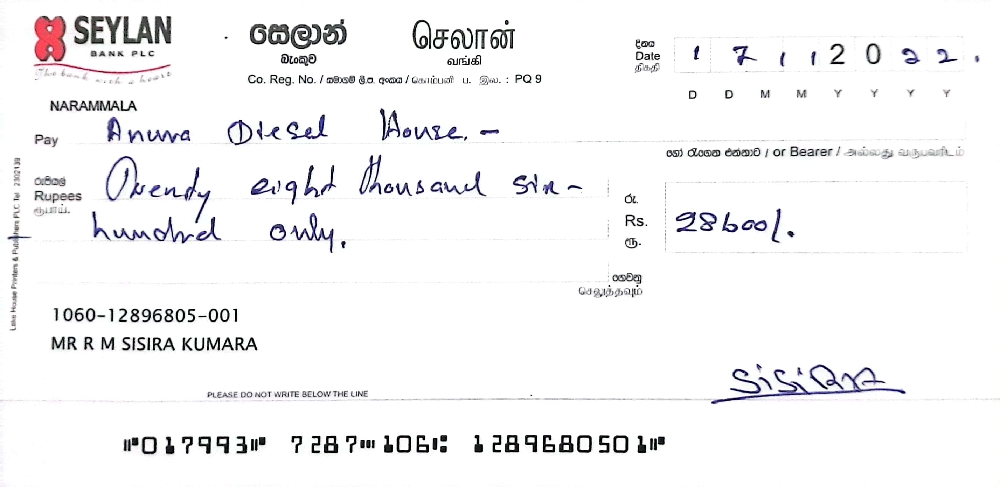 SEYLAN
BANK PLC
The bank with a heart
සෙලාන්
බැංකුව
செலான்
வங்கி
Co. Reg. No. / සමාගම් ලි.ප. අංකය / கொம்பனி ப. இல. : PQ 9
දිනය
Date
திகதி
1 7 1 1 2 0 2 2 .
D D M M Y Y Y Y
NARAMMALA
Pay Anura Diesel House. –
හෝ රැගෙන එන්නාට / or Bearer / அல்லது வருபவரிடம்
රුපියල්
Rupees
ரூபாய்.
Twendy eight thousand six –
hundred only.
රු.
Rs.
ரூ.
28600/.
ගෙවනු
செலுத்தவும்
Lake House Printers & Publishers PLC Tel 2302139
1060-12896805-001
MR R M SISIRA KUMARA
SISIRA
PLEASE DO NOT WRITE BELOW THE LINE
⑈017993⑈ 7287⑉106⑆ 1289680501⑈